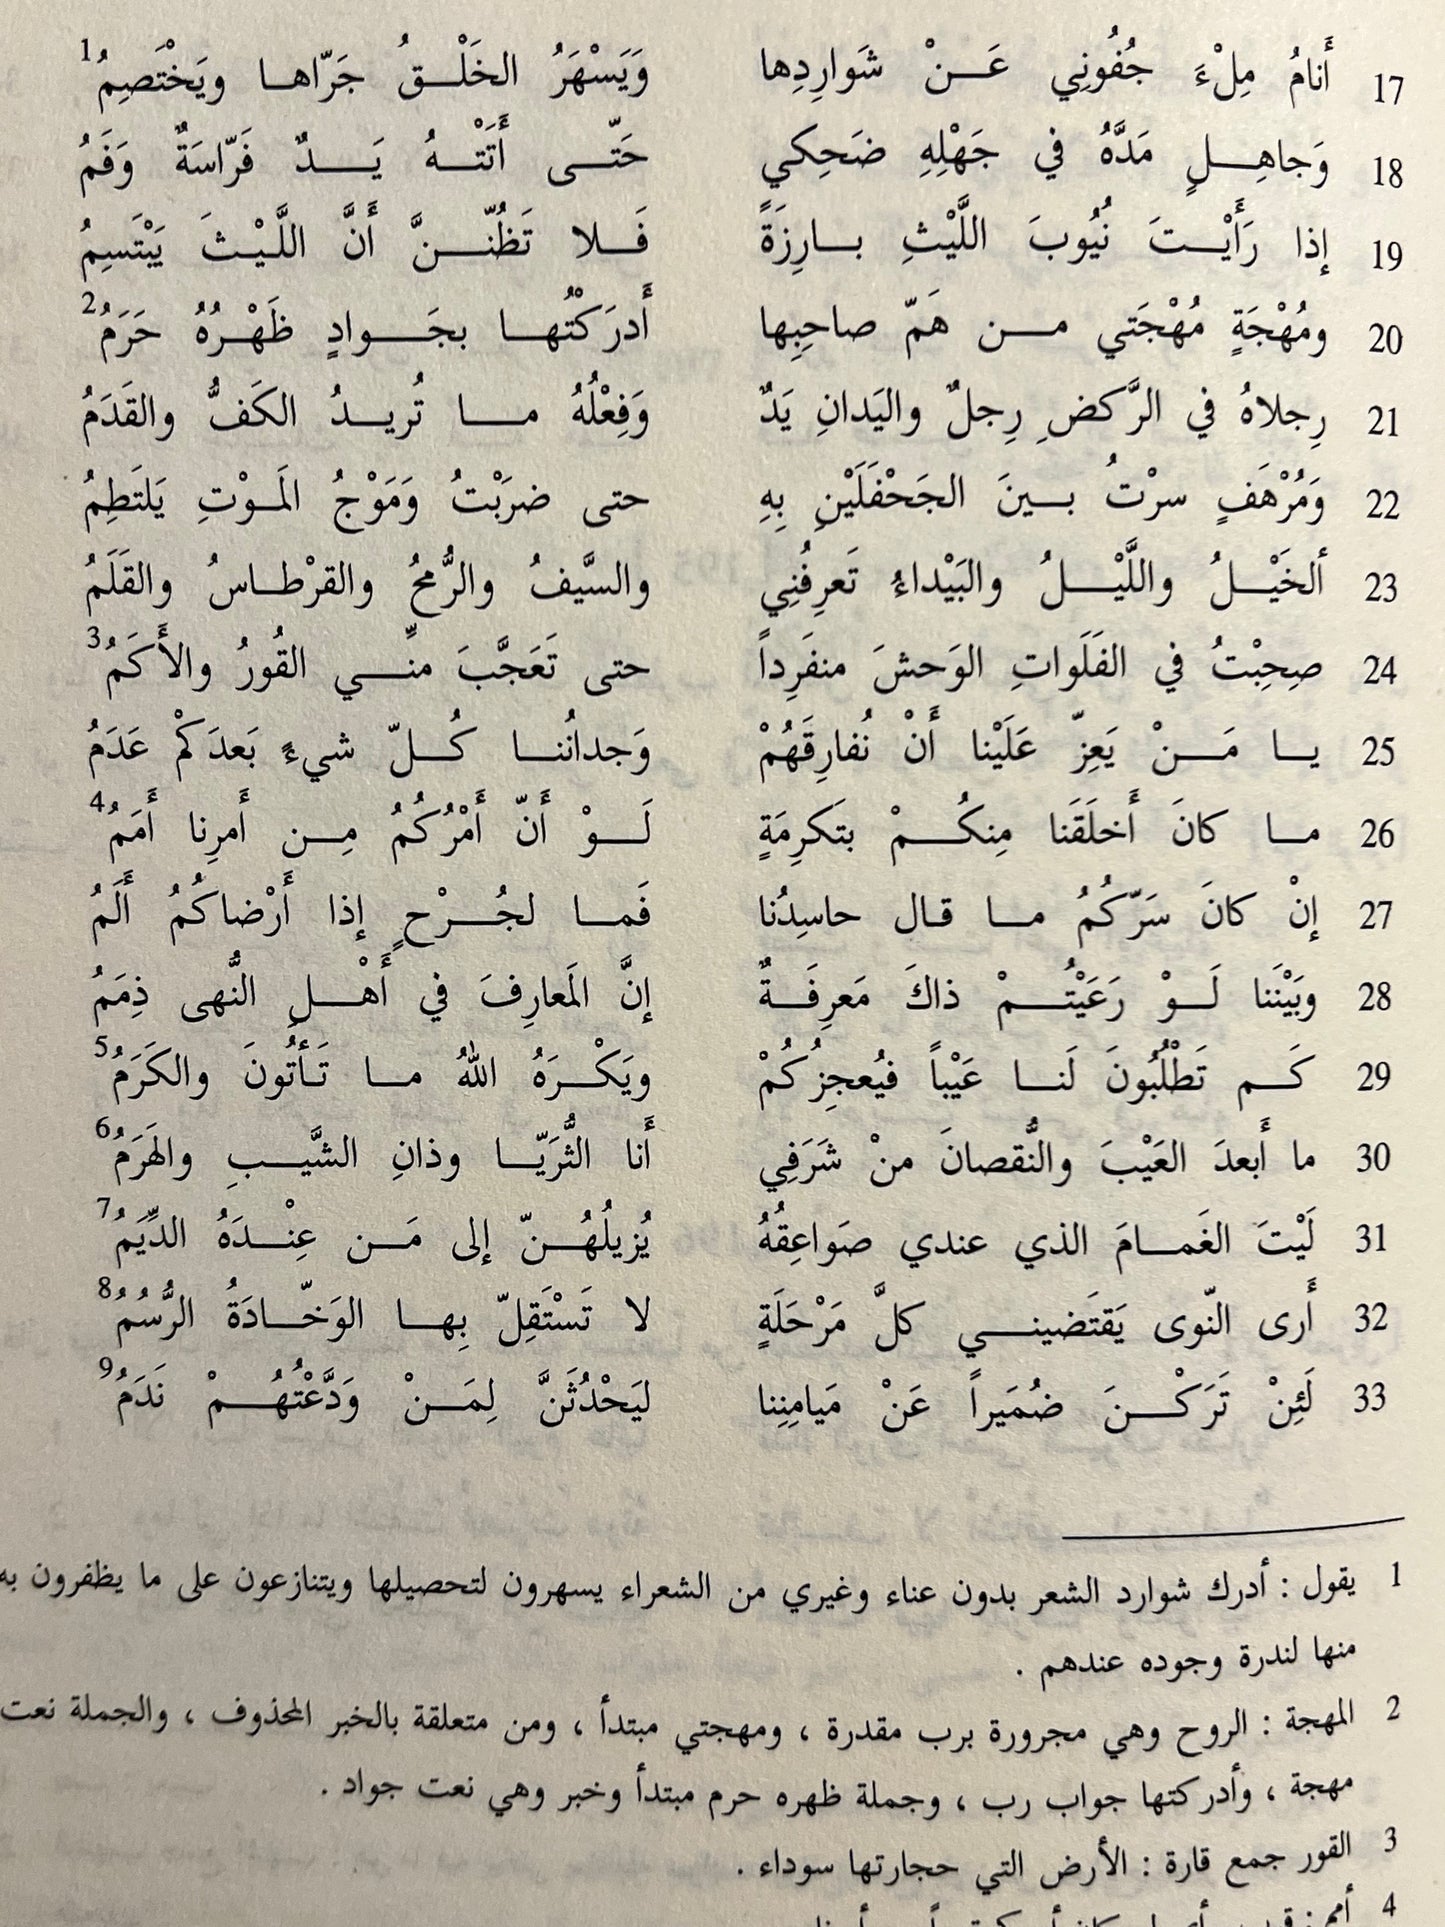 17 أَنامُ مِلْءَ جُفُونِي عَـــنْ شَوارِدِها وَيَسْهَرُ الخَلْـــقُ جَرّاهـــا ويَخْتَصِمُ1
18 وَجاهِـــلٍ مَدَّهُ في جَهْلِهِ ضَحِكي حَتّـــى أَتَتْـــهُ يَـــدٌ فَرّاسَةٌ وَفَمُ
19 إذا رَأَيْـــتَ نُيُوبَ اللَّيْثِ بـــارِزَةً فَـــلا تَظُنّـــنَّ أَنَّ اللَّيْـــثَ يَبْتَسِمُ
20 ومُهْجَةٍ مُهْجَتي مـــن هَمّ صاحِبِها أَدرَكْتُهـــا بجَـــوادٍ ظَهْـــرُهُ حَرَمُ2
21 رِجلاهُ في الرَّكضِ رِجلٌ واليَدانِ يَدٌ وَفِعْلُهُ مـــا تُريـــدُ الكَفُّ والقَدَمُ
22 وَمُرْهَفٍ سرْتُ بـــينَ الجَحْفَلَيْنِ بِهِ حتى ضرَبْتُ وَمَوْجُ المَـــوْتِ يَلتَطِمُ
23 ألخَيْـــلُ واللَّيْـــلُ والبَيْداءُ تَعرِفُنِي والسَّيفُ والرُّمحُ والقرْطـــاسُ والقَلَمُ
24 صِحِبْتُ في الفَلَواتِ الوَحشَ منفَرِداً حتى تَعَجَّبَ منّـــي القُورُ والأَكَمُ3
25 يـــا مَـــنْ يَعِزّ عَلَيْنا أَنْ نُفارِقَهُمْ وَجداُننـــا كُـــلّ شيءٍ بَعدَكمْ عَدَمُ
26 مـــا كانَ أَخلَقَنا مِنكُـــمْ بتَكرِمَةٍ لَـــوْ أَنّ أَمْرُكُمُ مِـــن أَمرِنا أَمَمُ4
27 إنْ كانَ سَرّكُمُ مـــا قال حاسِدُنا فَمـــا لجُـــرْحٍ إذا أَرْضاكُمُ أَلَمُ
28 وبَيْنَنا لَـــوْ رَعَيْتُـــمْ ذاكَ مَعرِفَـــةٌ إنَّ المَعارِفَ في أَهْـــلِ النُّهى ذِمَمُ
29 كَـــم تَطْلُبُونَ لَنـــا عَيْباً فيُعجِزُكُمْ ويَكْـــرَهُ اللهُ مـــا تَأتُونَ والكَرَمُ5
30 ما أَبعدَ العَيْبَ والنُّقصانَ منْ شَرَفِي أَنا الثُّرَيّـــا وذانِ الشَّيـــبِ والهَرَمُ6
31 لَيْتَ الغَمـــامَ الذي عندي صَواعِقُهُ يُزيلُهُـــنّ إلى مَـــن عِنْـــدَهُ الدِّيَمُ7
32 أَرى النّوى يَقتَضينـــي كلَّ مَرْحَلَةٍ لا تَسْتَقِلّ بِهـــا الوَخّـــادَةُ الرُّسُمُ8
33 لَئِنْ تَرَكْـــنَ ضُمَيراً عَنْ مَيامِنِنا ليَحْدُثَنَّ لِمَـــنْ وَدَّعْتُهُـــمْ نَدَمُ9
1 يقول : أدرك شوارد الشعر بدون عناء وغيري من الشعراء يسهرون لتحصيلها ويتنازعون على ما يظفرون به
منها لندرة وجوده عندهم .
2 المهجة : الروح وهي مجرورة برب مقدرة ، ومهجتي مبتدأ ، ومن متعلقة بالخبر المحذوف ، والجملة نعت
مهجة ، وأدركتها جواب رب ، وجملة ظهره حرم مبتدأ وخبر وهي نعت جواد .
3 القور جمع قارة : الأرض التي حجارتها سوداء .
4